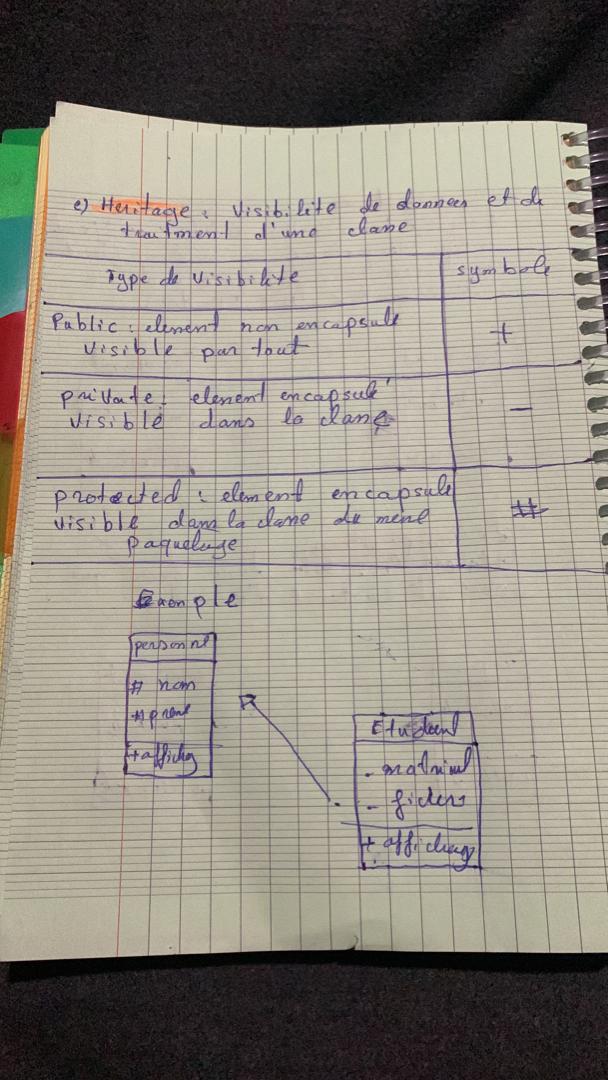 e) Heritage : Visibilite de donnees et de
traitment d'une classe
Type de Visibilite
symbole
Public : element non encapsule
visible par tout
+
private : element encapsulé
visible dans la classe
-
protected : element encapsule
visible dans la classe du même
paquetage
#
Exemple
personne
# nom
# prenom
+ affichage
Etudiant
- matricul
-
+ affichage